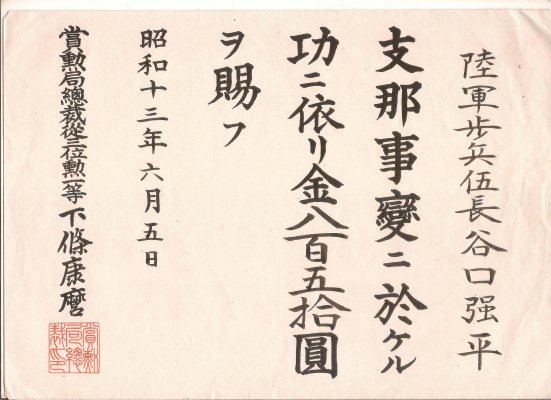 陸軍步兵伍長谷口强平
支那事變ニ於ケル
功ニ依リ金八百五拾圓
ヲ賜フ
昭和十三年六月五日
賞勲局總裁從三位勲一等下條康麿
賞勲局總裁印